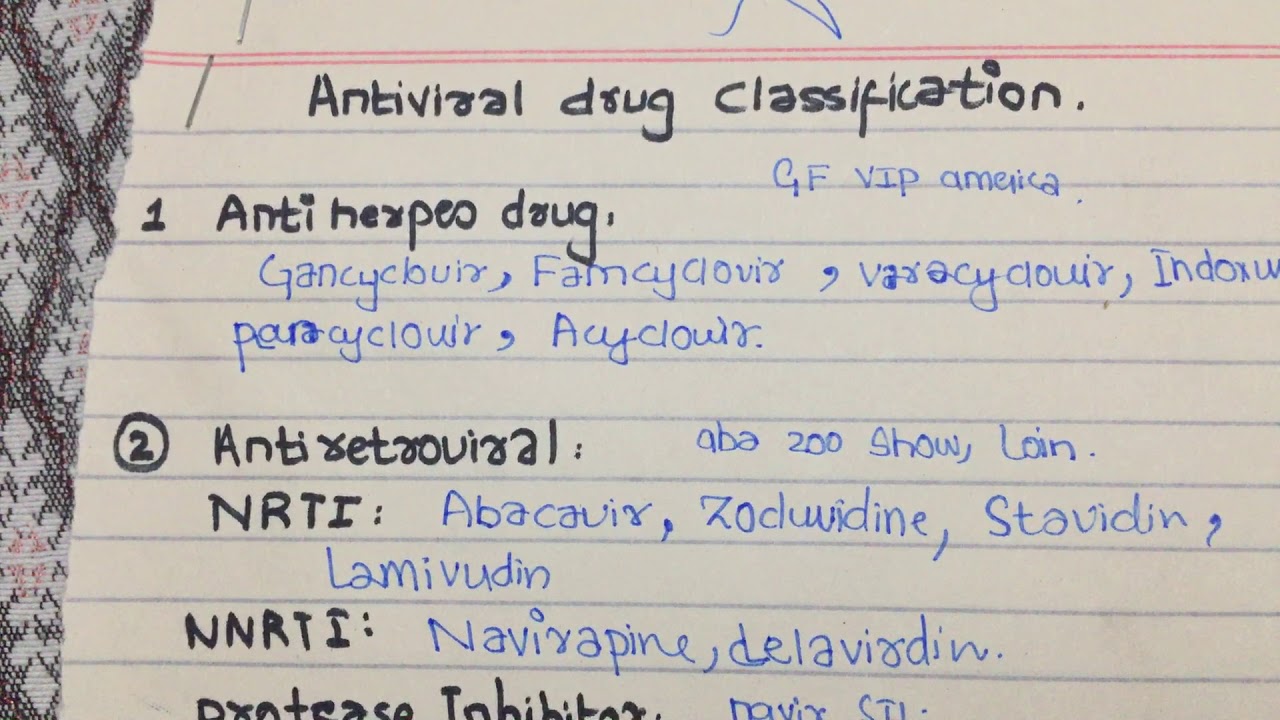 Antiviral drug classification.
GF VIP america.
1 Anti herpes drug.
Gancyclouir, Famcyclovir, varacyclouir, Indoxu
peracyclouir, Acyclouir.
② Antiretroviral: aba zoo show, Loin.
NRTI: Abacavir, Zoduvidine, Stavidin,
Lamivudin
NNRTI: Navirapine, delavirdin.
protease Inhibitor. navir STL.